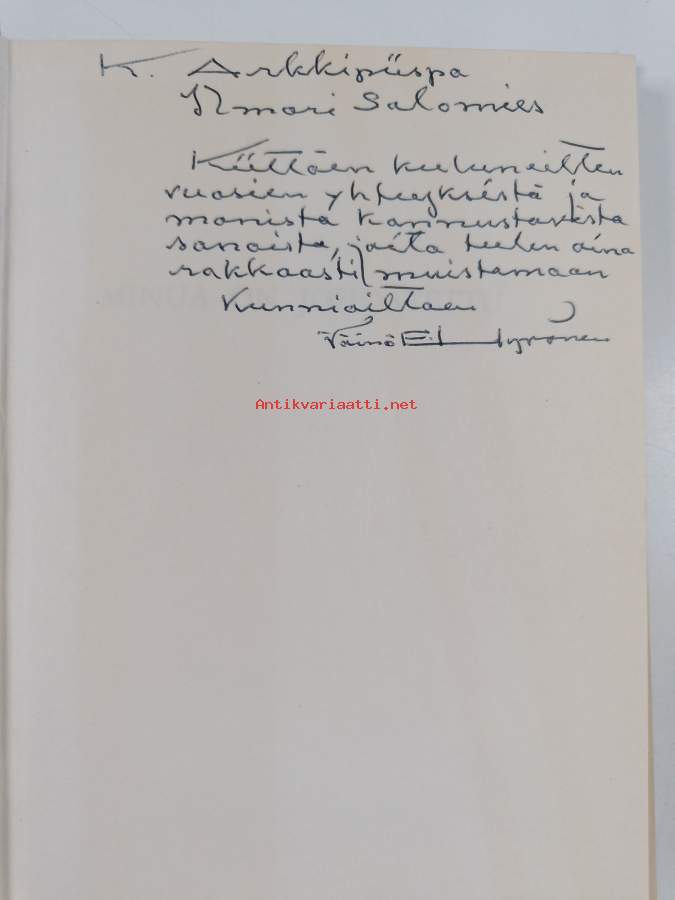 K. Arkkipiispa
Ilmari Salomies
Kiittäen kuluneitten
vuosien yhteyksistä ja
monista kannustavista
sanoista, joita tulen aina
rakkaasti muistamaan
Kunnioittaen
Väinö E. Hyrönen
Antikvariaatti.net